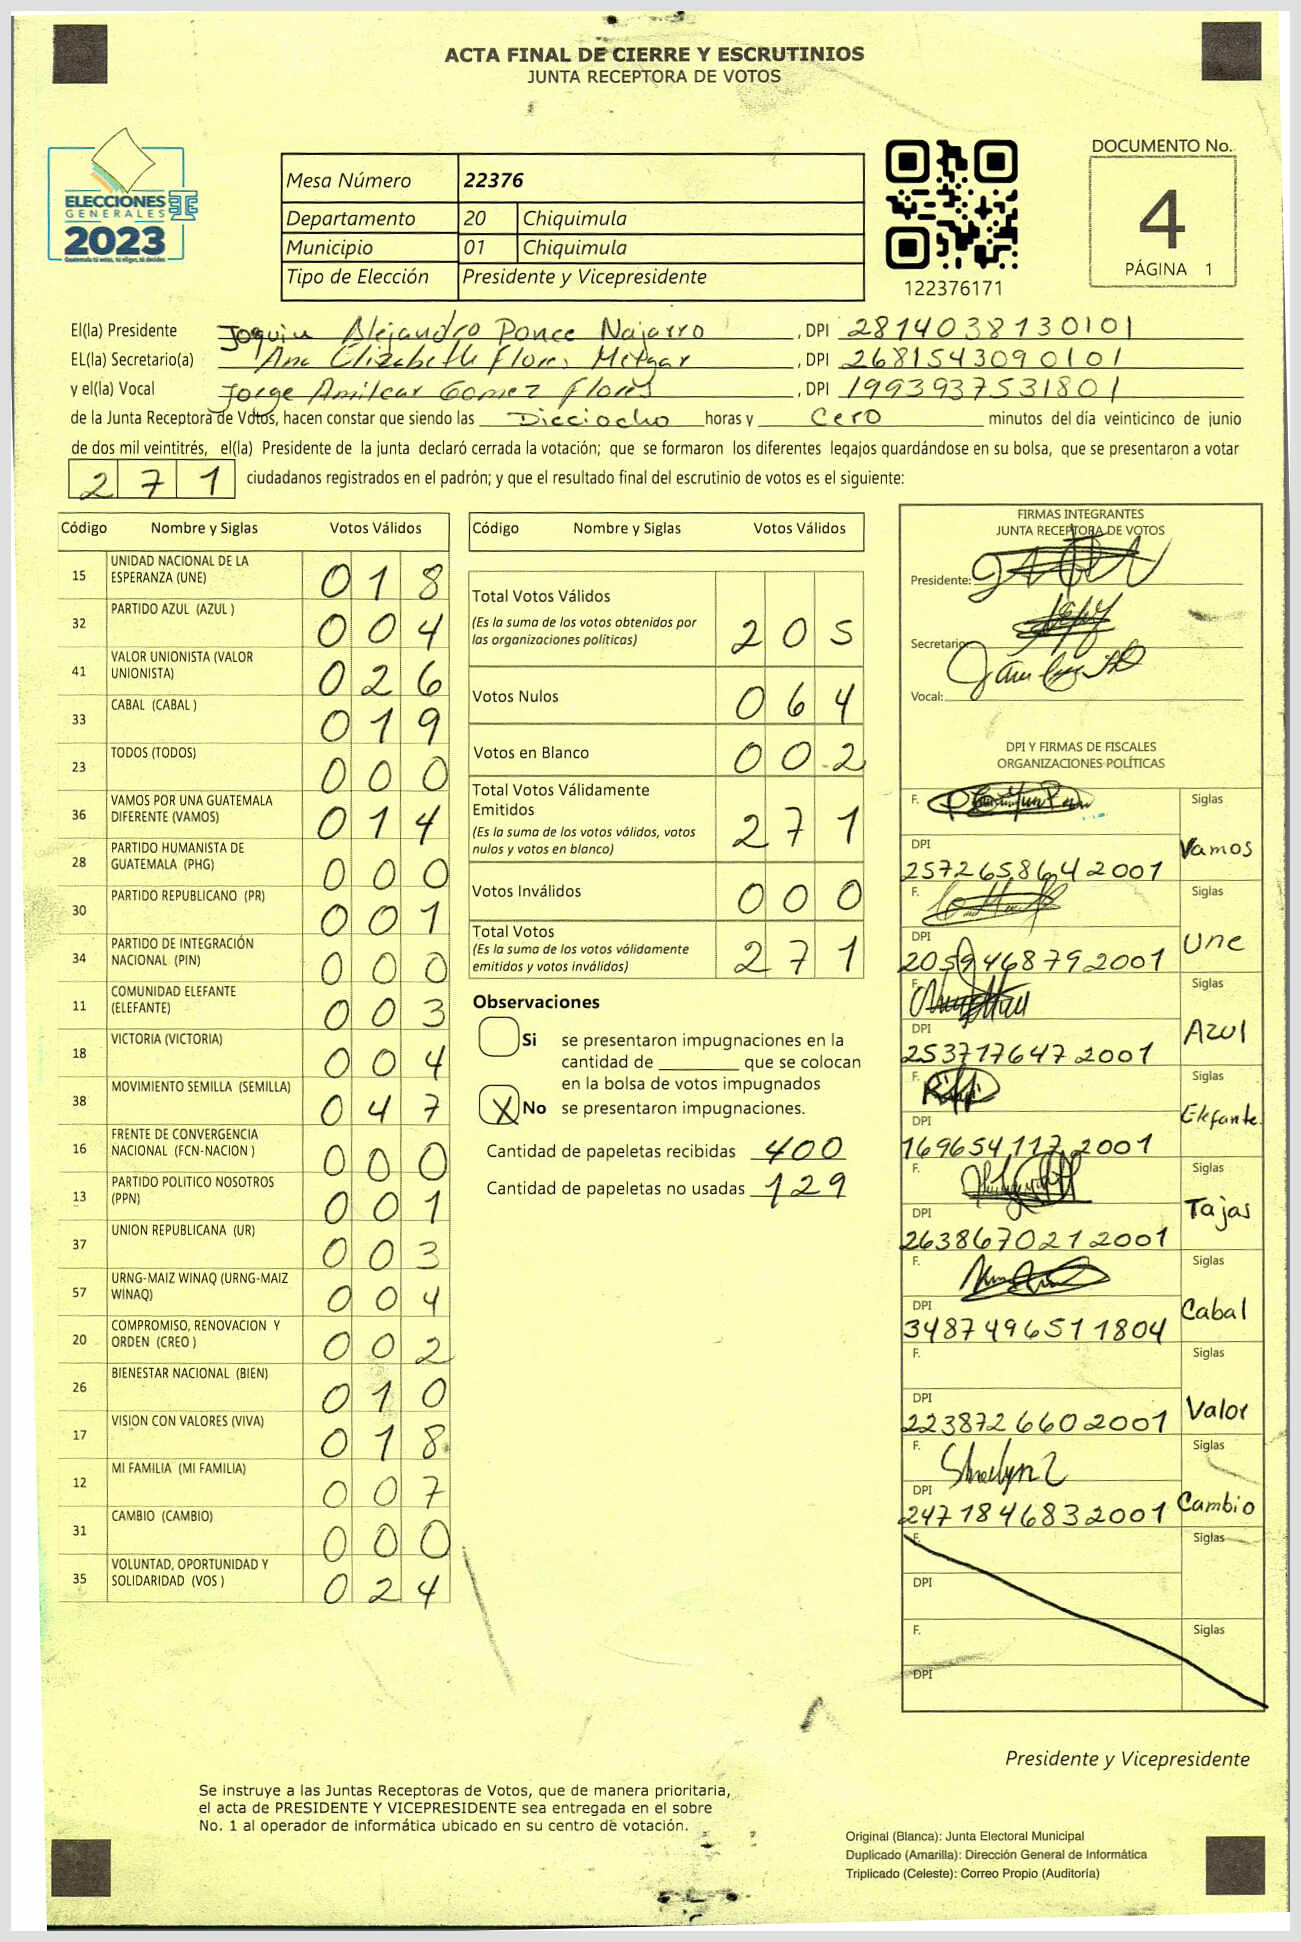 ACTA FINAL DE CIERRE Y ESCRUTINIOS
JUNTA RECEPTORA DE VOTOS
ELECCIONES
GENERALES
2023
Guatemala tú votas, tú eliges, tú decides
Mesa Número 22376
Departamento 20 Chiquimula
Municipio 01 Chiquimula
Tipo de Elección Presidente y Vicepresidente
122376171
DOCUMENTO No.
4
PÁGINA 1
El(la) Presidente Joquin Alejandro Ponce Najarro, DPI 2814038130101
EL(la) Secretario(a) Ana Elizabeth Flores, DPI 2681543090101
y el(la) Vocal Jorge Amilcar Gomez Flores, DPI 1993937531801
de la Junta Receptora de Votos, hacen constar que siendo las Dieciocho horas y Cero minutos del día veinticinco de junio
de dos mil veintitrés, el(la) Presidente de la junta declaró cerrada la votación; que se formaron los diferentes legajos guardándose en su bolsa, que se presentaron a votar
271 ciudadanos registrados en el padrón; y que el resultado final del escrutinio de votos es el siguiente:
Código Nombre y Siglas Votos Válidos
15 UNIDAD NACIONAL DE LA ESPERANZA (UNE) 018
32 PARTIDO AZUL (AZUL ) 004
41 VALOR UNIONISTA (VALOR UNIONISTA) 026
33 CABAL (CABAL ) 019
23 TODOS (TODOS) 000
36 VAMOS POR UNA GUATEMALA DIFERENTE (VAMOS) 014
28 PARTIDO HUMANISTA DE GUATEMALA (PHG) 000
30 PARTIDO REPUBLICANO (PR) 001
34 PARTIDO DE INTEGRACIÓN NACIONAL (PIN) 000
11 COMUNIDAD ELEFANTE (ELEFANTE) 003
18 VICTORIA (VICTORIA) 004
38 MOVIMIENTO SEMILLA (SEMILLA) 047
16 FRENTE DE CONVERGENCIA NACIONAL (FCN-NACION ) 000
13 PARTIDO POLITICO NOSOTROS (PPN) 001
37 UNION REPUBLICANA (UR) 003
57 URNG-MAIZ WINAQ (URNG-MAIZ WINAQ) 004
20 COMPROMISO, RENOVACION Y ORDEN (CREO ) 002
26 BIENESTAR NACIONAL (BIEN) 010
17 VISION CON VALORES (VIVA) 018
12 MI FAMILIA (MI FAMILIA) 007
31 CAMBIO (CAMBIO) 000
35 VOLUNTAD, OPORTUNIDAD Y SOLIDARIDAD (VOS ) 024
Código Nombre y Siglas Votos Válidos
Total Votos Válidos 205
(Es la suma de los votos obtenidos por
las organizaciones políticas)
Votos Nulos 064
Votos en Blanco 002
Total Votos Válidamente
Emitidos 271
(Es la suma de los votos válidos, votos
nulos y votos en blanco)
Votos Inválidos 000
Total Votos 271
(Es la suma de los votos válidamente
emitidos y votos inválidos)
Observaciones
Si se presentaron impugnaciones en la
cantidad de ________ que se colocan
en la bolsa de votos impugnados
X No se presentaron impugnaciones.
Cantidad de papeletas recibidas 400
Cantidad de papeletas no usadas 129
FIRMAS INTEGRANTES
JUNTA RECEPTORA DE VOTOS
Presidente:
Secretario
Vocal:
DPI Y FIRMAS DE FISCALES
ORGANIZACIONES POLÍTICAS
F. Siglas
DPI Vamos
2572658642001
F. Siglas
DPI Une
2059468792001
F. Siglas
DPI Azul
2537176472001
F. Siglas
DPI Elefante.
1696541172001
F. Siglas
DPI Tajas
2638670212001
F. Siglas
DPI Cabal
3487496511804
F. Siglas
DPI Valor
2238726602001
F. Siglas
DPI Cambio
2471846832001
F. Siglas
DPI
F. Siglas
DPI
Presidente y Vicepresidente
Se instruye a las Juntas Receptoras de Votos, que de manera prioritaria,
el acta de PRESIDENTE Y VICEPRESIDENTE sea entregada en el sobre
No. 1 al operador de informática ubicado en su centro de votación.
Original (Blanca): Junta Electoral Municipal
Duplicado (Amarilla): Dirección General de Informática
Triplicado (Celeste): Correo Propio (Auditoría)